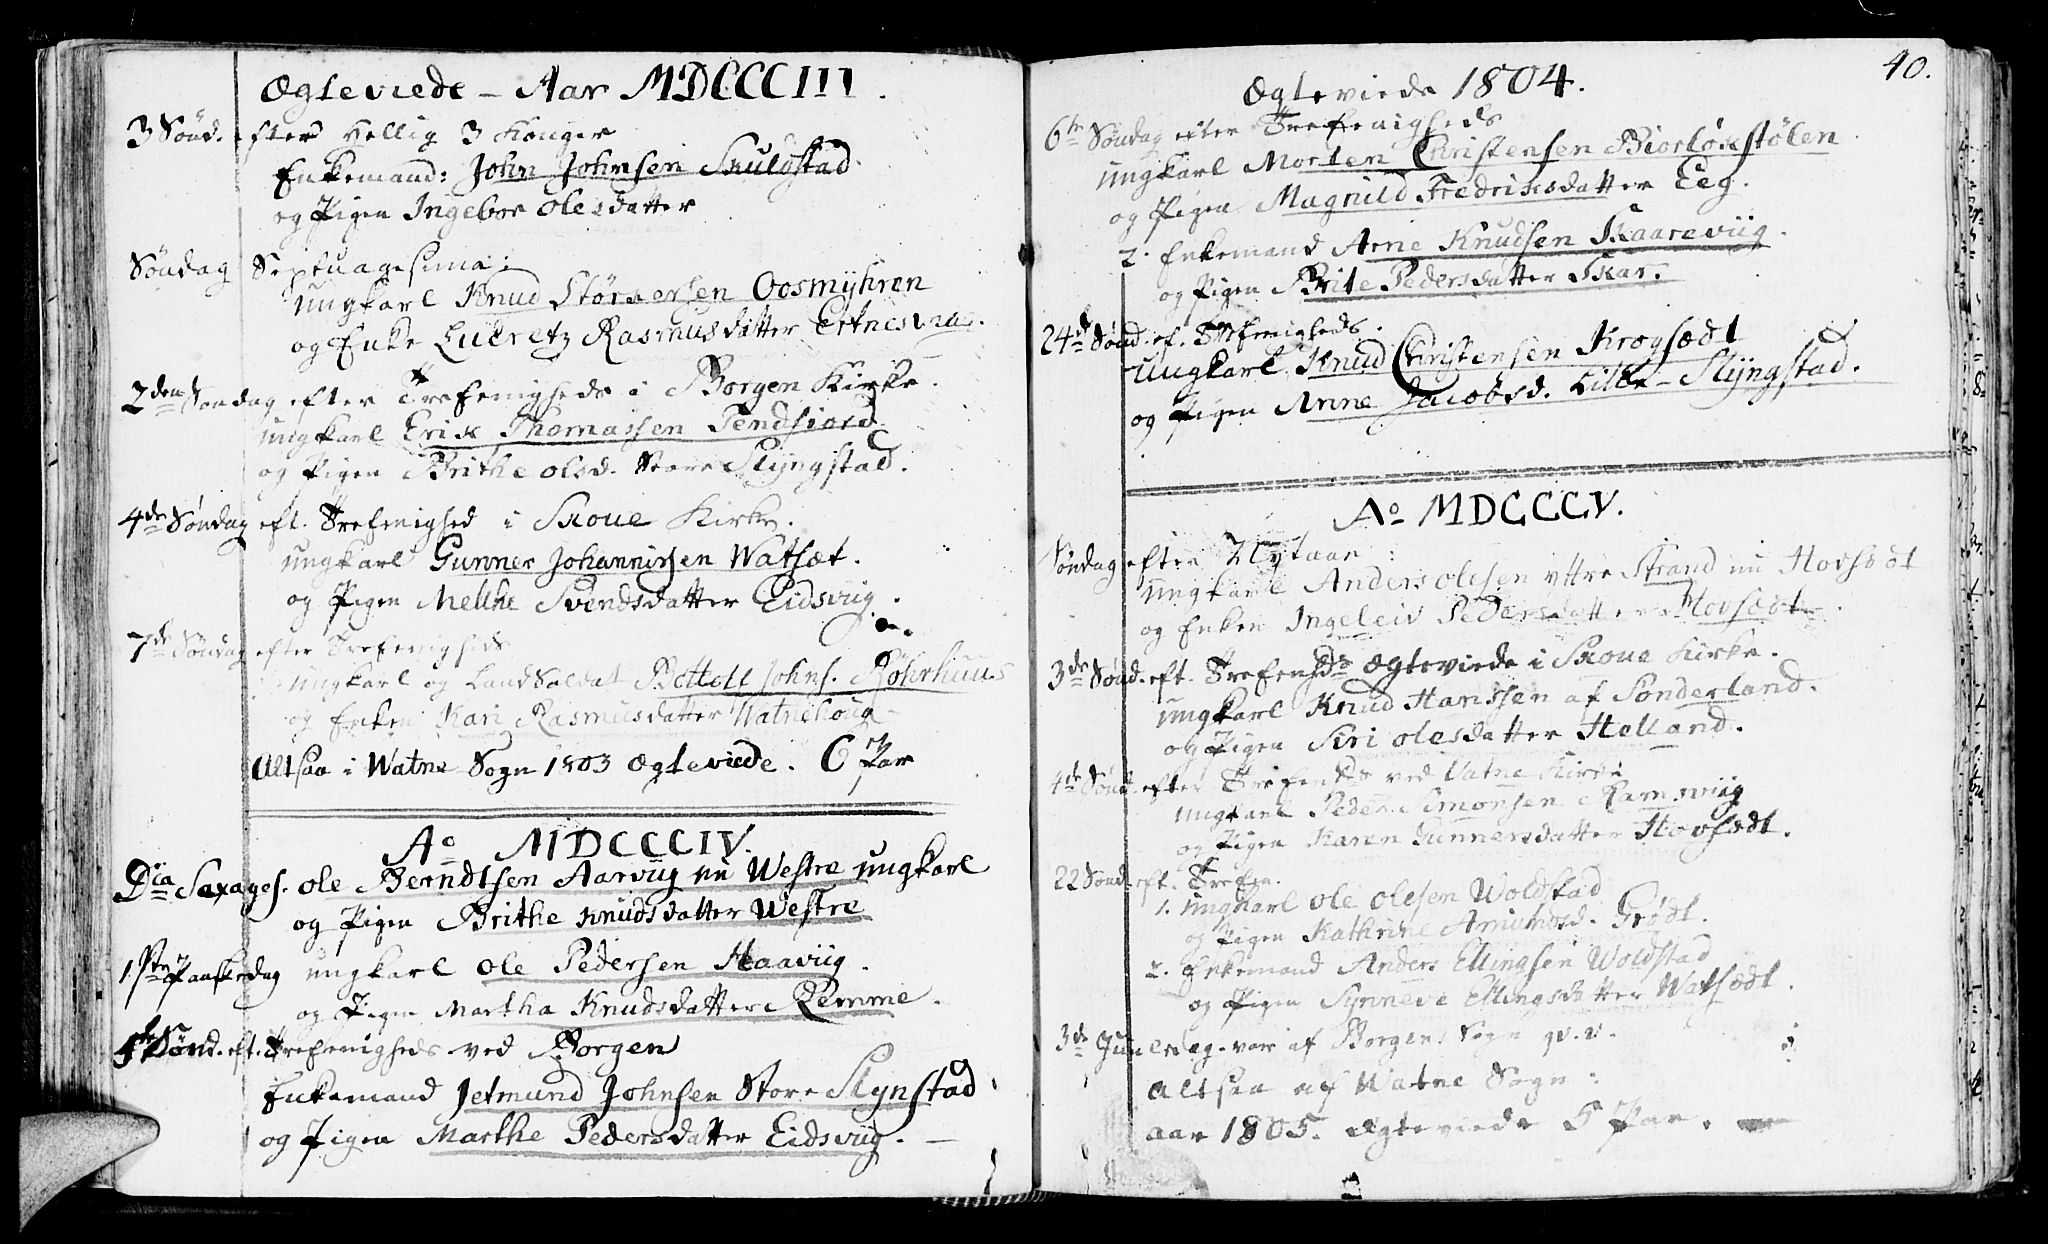 Ægteviede – Aar MDCCCIII.
3 Sönd. efter Hellig 3 Konger
Enkemand: John Johnsen Skulgstad
og Pigen Ingebor Olesdatter
Söndag Septuagesima:
Ungkarl Knud Störkersen Oosmyhren
og Enke Lucretz Rasmusdatter Ertnesvaag.
2den Söndag efter Trefenigheds i Borgen Kirke.
Ungkarl Erik Thomassen Tendfiord
og Pigen Brithe Olsd. Store Slyngstad.
4de Söndag eft. Trefenighed i Skoue Kirke.
Ungkarl Gunner Johannissen Watsæt.
og Pigen Methe Svendsdatter Eidsviig.
7de Söndag efter Trefenigheds
Ungkarl og Land Saldat Bottolf Johns. Röhrhuus
og Enken Kari Rasmusdatter Watnehoug
Altsaa i Watne Sogn 1803 Ægteviede. 6 Par
Ao MDCCCIV.
Dca Sexages. Ole Berndtsen Aarviig nu Westre Ungkarl
og Pigen Brithe Knudsdatter Westre
1ste Paaskedag Ungkarl Ole Pedersen Haaviig.
og Pigen Martha Knudsdatter Remme.
Sönd. eft. Trefenigheds ved Borgen
Enkemand Jetmund Johnsen Store Slynstad
og Pigen Marthe Pedersdatter Eidsviig. –
40.
Ægteviede 1804.
6te Söndag efter Trefenigheds
Ungkarl Morten Christensen Biorlökstölen
og Pigen Magnild Fredriksdatter Eeg.
2. Enkemand Arne Knudsen Skaareviig.
og Pigen Brite Pedersdatter Skar.
24de Sönd. ef. Trefenigheds.
Ungkarl Knud Christensen Krogsædt
og Pigen Anne Jacobsd. Lille-Slyngstad.
Ao MDCCCV.
Söndag efter Nytaar:
Ungkarl Anders Olesen yttre Strand nu Hovsædt
og Enken Ingeleiv Pedersdatter Hovsædt.
3de Sönd. eft. Trefends Ægteviede i Skoue Kirke.
Ungkarl Knud Hanssen af Sönderland.
og Pigen Siri Olesdatter Helland.
4de Sönd. efter Trefends ved Vatne Kirke
Ungkarl Peder Simonsen Ramsviig
og Pigen Karen Gunnersdatter Hovsædt.
22 Sönd. eft. Trefen.
1. Ungkarl Ole Olesen Woldstad
og Pigen Kathrine Amundsd. Grödt.
2. Enkemand Anders Ellingsen Woldstad
og Pigen Synneve Ellingsdatter Watsædt.
3de Juuledag. var af Borgens Sogn qv. v.
Altsaa af Watne Sogn:
Aar 1805. Ægteviede 5 Par.